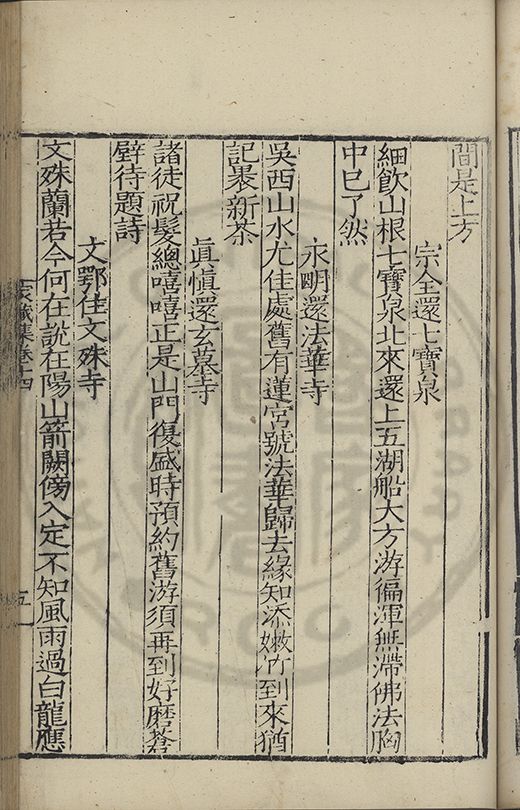 間是上方
宗全還七寶泉
細飲山根七寶泉北來還上五湖船大方游徧渾無滯佛法胸
中巳了然
永明還法華寺
吳西山水尤佳處舊有蓮宮號法華歸去緣知添嫩竹到來猶
記褁新茶
眞愼還玄墓寺
諸徒祝髮總嘻嘻正是山門復盛時預約舊游須再到好磨蒼
壁待題詩
文鄂住文殊寺
文殊蘭若今何在說在陽山箭闕傍入定不知風雨過白龍應
家藏集卷十四
五